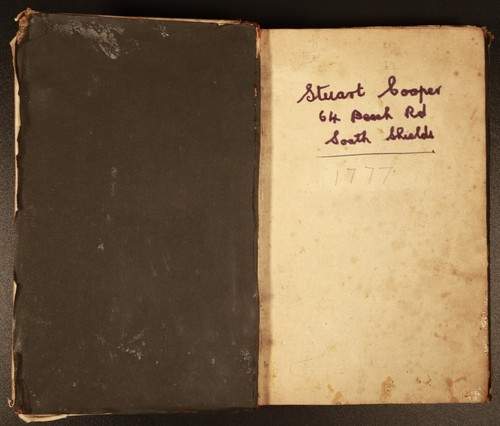 Stuart Cooper
64 Beech Rd
South Shields
1777